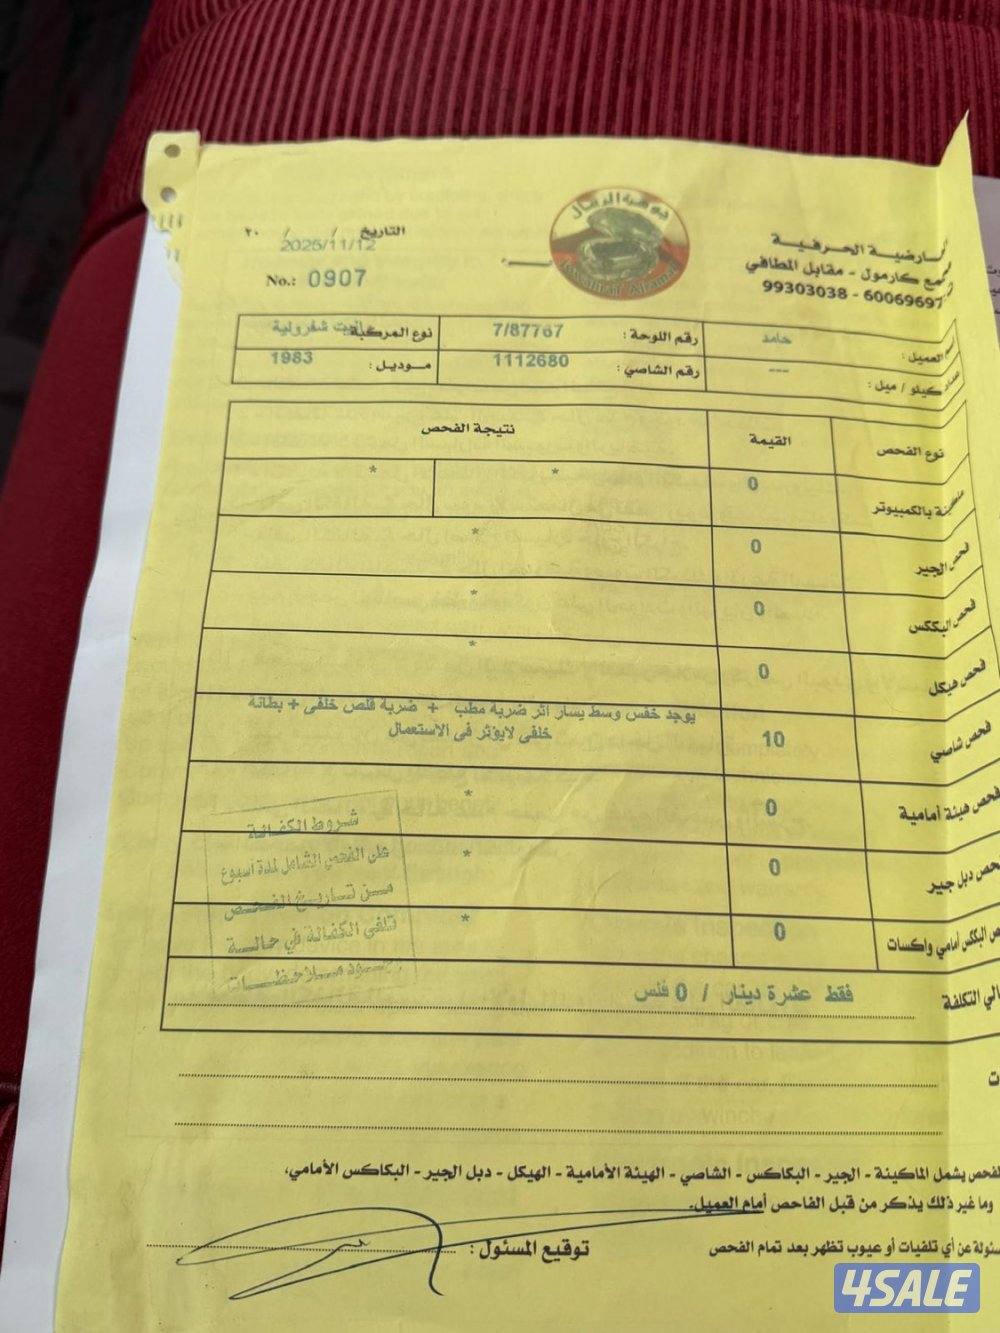 جوهرة الرمال
Jawharat Alramal
العارضية الحرفية
مجمع كارمول - مقابل المطافي
99303038 - 60069697
التاريخ / / ٢٠
2025/11/12
No.: 0907
العميل: حامد رقم اللوحة: 7/87767 نوع المركبة: شفرولية
كيلو / ميل: --- رقم الشاصي: 1112680 موديل: 1983
نوع الفحص القيمة نتيجة الفحص
ماكينة بالكمبيوتر 0 * *
فحص الجير 0 *
فحص البككس 0 *
فحص هيكل 0 *
فحص شاصي 10 يوجد خفس وسط يسار اثر ضربة مطب + ضربة قلص خلفى + بطانة
خلفى لايؤثر فى الاستعمال
فحص هيئة أمامية 0 *
فحص دبل جير 0 *
البككس أمامي واكسات 0 *
التكلفة فقط عشرة دينار / 0 فلس
شروط الكفالة
على الفحص الشامل لمدة أسبوع
من تاريخ الفحص
تلغى الكفالة في حالة
وجود ملاحظات
الفحص يشمل الماكينة - الجير - البكاكس - الشاصي - الهيئة الأمامية - الهيكل - دبل الجير - البكاكس الأمامي.
وما غير ذلك يذكر من قبل الفاحص أمام العميل.
عن أي تلفيات أو عيوب تظهر بعد تمام الفحص توقيع المسئول :
4SALE